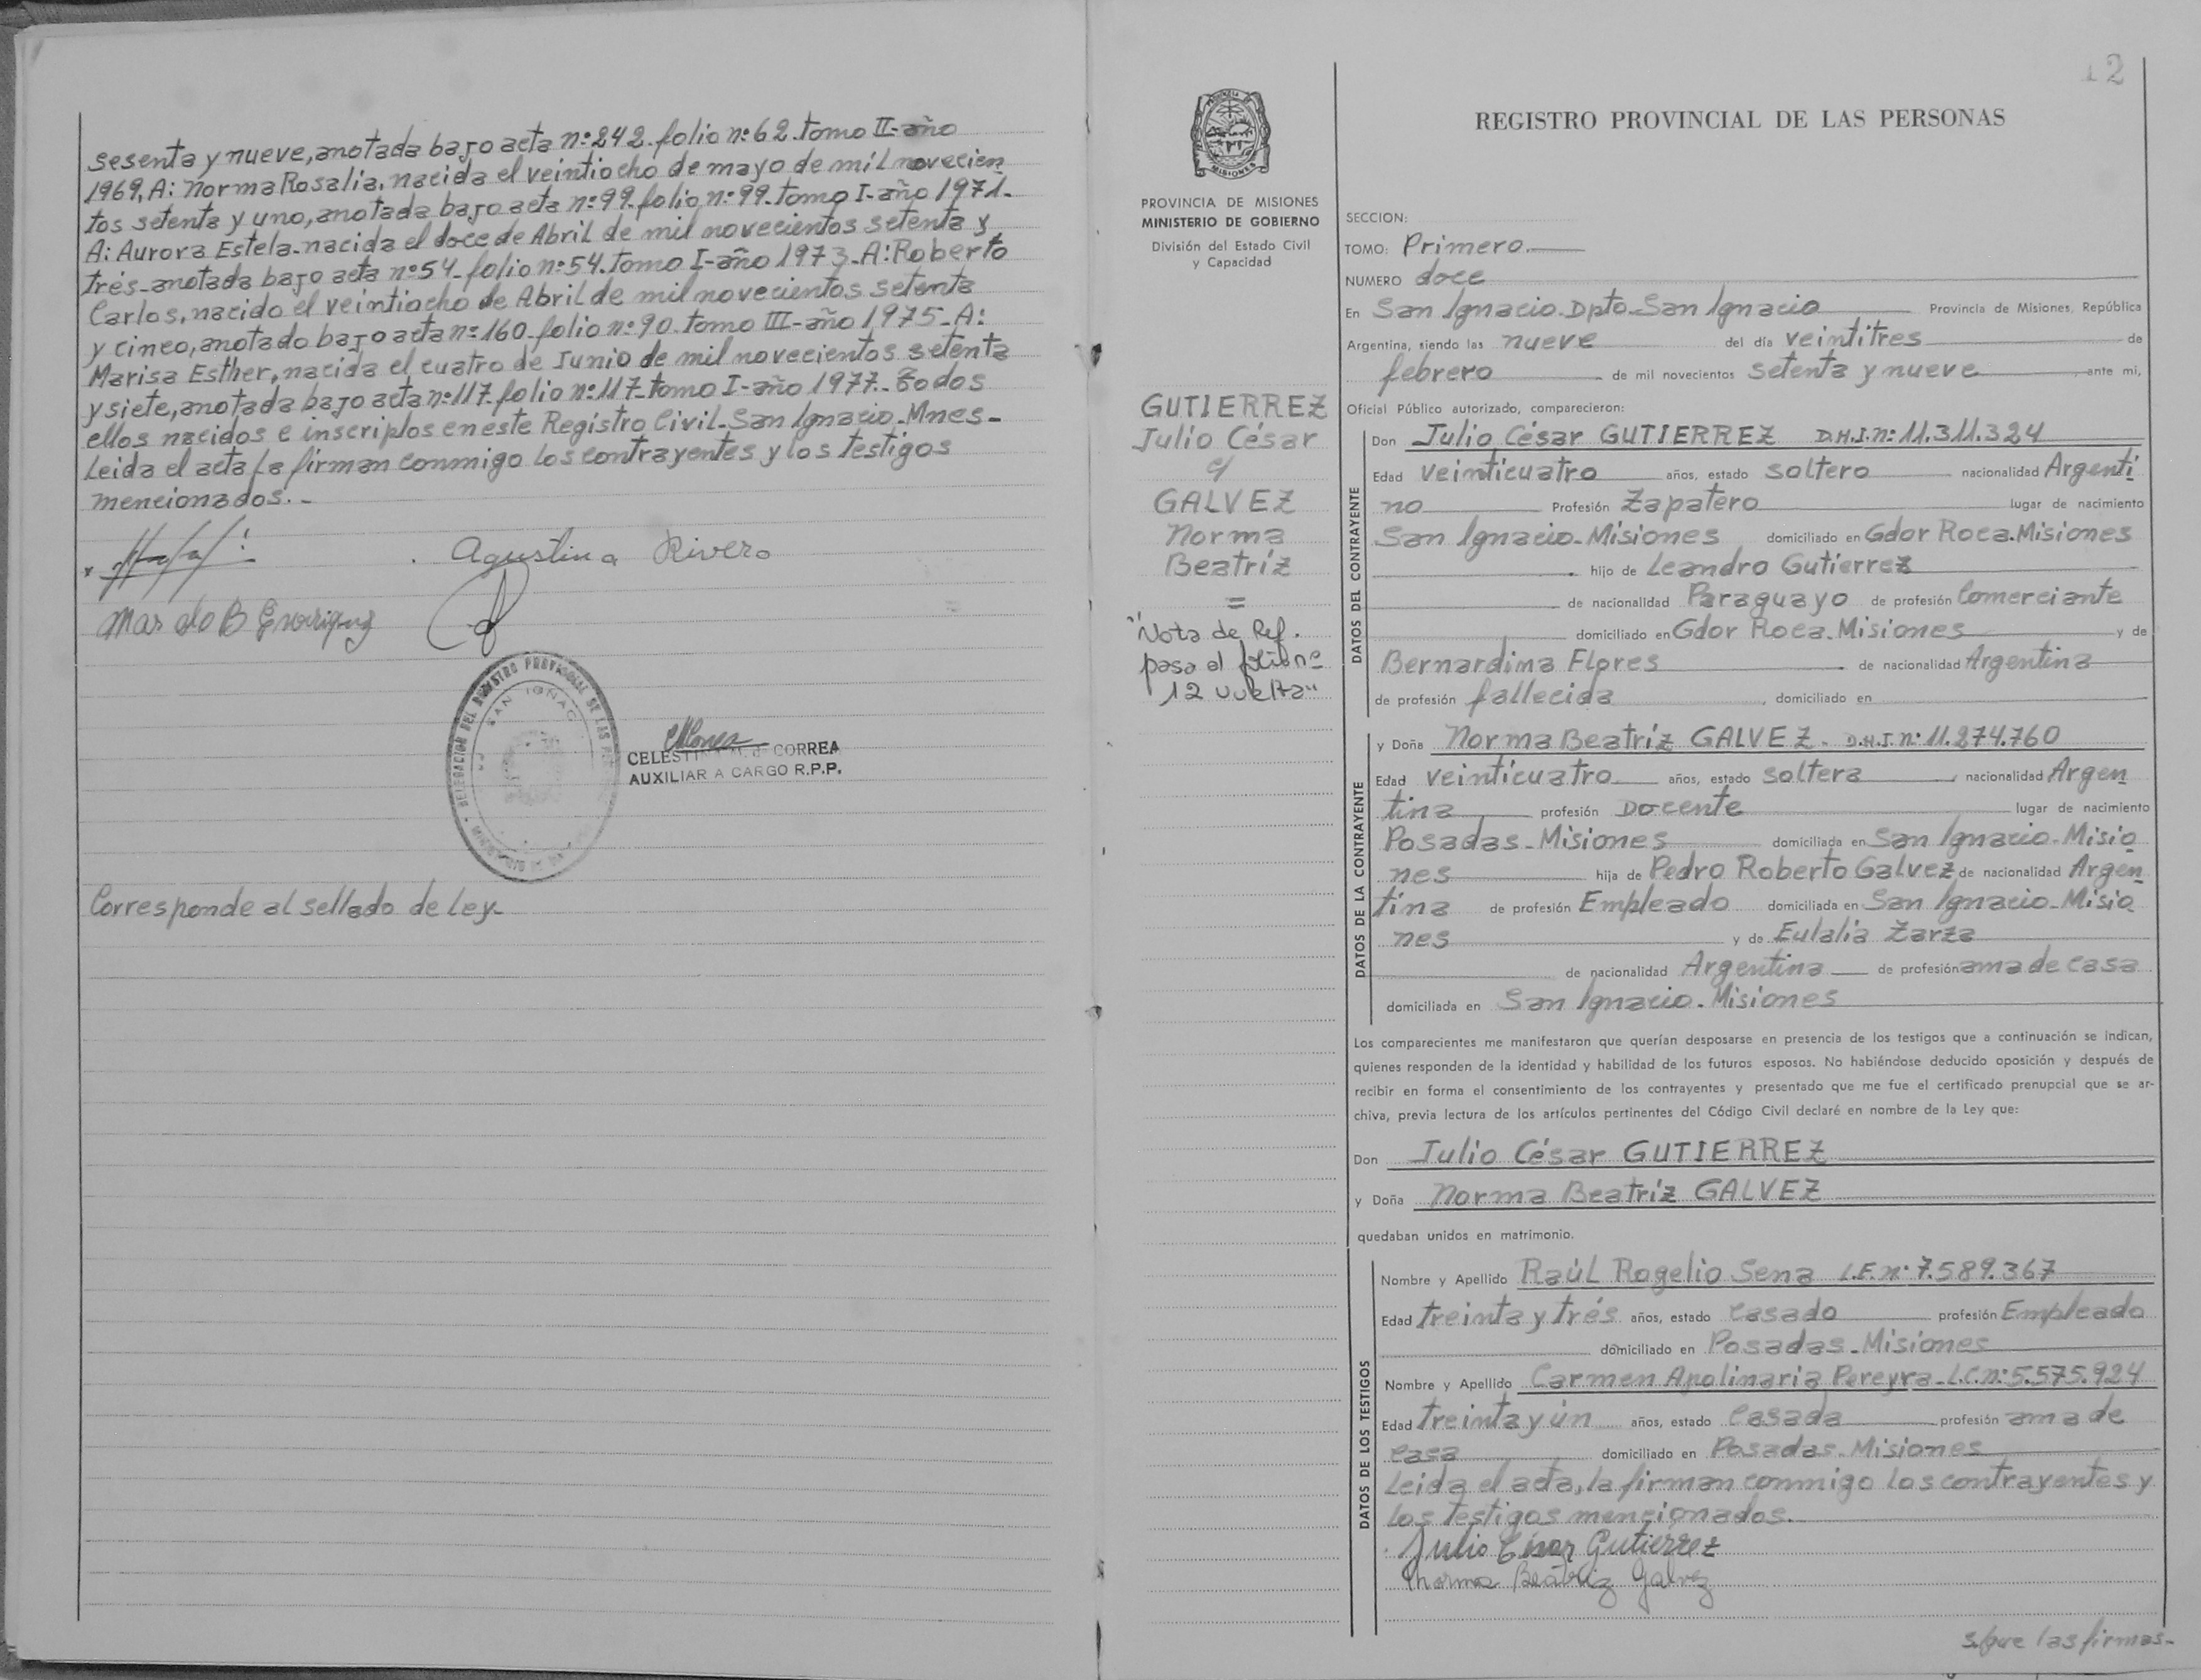 sesenta y nueve, anotada bajo acta nº 242. folio nº 62. tomo II-año
1969, A: Norma Rosalia, nacida el veintiocho de mayo de mil novecien
tos setenta y uno, anotada bajo acta nº 99. folio nº 99. tomo I-año 1971-
A: Aurora Estela. nacida el doce de Abril de mil novecientos setenta y
trés-anotada bajo acta nº 54. folio nº 54. tomo I-año 1973-A: Roberto
Carlos, nacido el veintiocho de Abril de mil novecientos setenta
y cinco, anotado bajo acta nº 160. folio nº 90. tomo III-año 1975-A:
Marisa Esther, nacida el cuatro de Junio de mil novecientos setenta
y siete, anotada bajo acta nº 117. folio nº 117. tomo I-año 1977.- Todos
ellos nacidos e inscriptos en este Registro Civil-San Ignacio-Mnes-
Leida el acta la firman conmigo los contrayentes y los testigos
mencionados.-
Agustina Rivero
CELESTI M. J. CORREA
AUXILIAR A CARGO R.P.P.
DELEGACION DEL REGISTRO PROVINCIAL DE LAS
SAN IGNAC
Corresponde al sellado de Ley-
12
PROVINCIA DE MISIONES
MINISTERIO DE GOBIERNO
División del Estado Civil
y Capacidad
GUTIERREZ
Julio César
c/
GALVEZ
Norma
Beatríz
=
"Nota de Ref.
pasa al folio nº
12 vuelta"
REGISTRO PROVINCIAL DE LAS PERSONAS
SECCION:
TOMO: Primero
NUMERO doce
En San Ignacio. Dpto-San Ignacio Provincia de Misiones, República
Argentina, siendo las nueve del día veintitres de
febrero de mil novecientos setenta y nueve, ante mi,
Oficial Público autorizado, comparecieron:
DATOS DEL CONTRAYENTE
Don Julio César GUTIERREZ D.N.I. nº: 11.311.324
Edad veinticuatro años, estado soltero nacionalidad Argenti
no Profesión Zapatero lugar de nacimiento
San Ignacio-Misiones domiciliado en Gdor Roca.Misiones
hijo de Leandro Gutierrez
de nacionalidad Paraguayo de profesión Comerciante
domiciliado en Gdor Roca. Misiones y de
Bernardina Flores de nacionalidad Argentina
de profesión fallecida, domiciliado en
DATOS DE LA CONTRAYENTE
y Doña Norma Beatríz GALVEZ - D.N.I. nº: 11.274.760
Edad veinticuatro años, estado soltera, nacionalidad Argen
tina profesión Docente lugar de nacimiento
Posadas-Misiones domiciliada en San Ignacio-Misio
nes hija de Pedro Roberto Galvez de nacionalidad Argen
tina de profesión Empleado domiciliada en San Ignacio-Misio
nes y de Eulalia Zarza
de nacionalidad Argentina de profesión ama de casa
domiciliada en San Ignacio-Misiones
Los comparecientes me manifestaron que querían desposarse en presencia de los testigos que a continuación se indican,
quienes responden de la identidad y habilidad de los futuros esposos. No habiéndose deducido oposición y después de
recibir en forma el consentimiento de los contrayentes y presentado que me fue el certificado prenupcial que se ar-
chiva, previa lectura de los artículos pertinentes del Código Civil declaré en nombre de la Ley que:
Don Julio César GUTIERREZ
y Doña Norma Beatríz GALVEZ
quedaban unidos en matrimonio.
DATOS DE LOS TESTIGOS
Nombre y Apellido Raúl Rogelio Sena L.E. nº: 7.589.367
Edad treinta y trés años, estado casado profesión Empleado
domiciliado en Posadas-Misiones
Nombre y Apellido Carmen Apolinaria Pereyra-L.C. nº: 5.575.924
Edad treinta y ún años, estado casada profesión ama de
casa domiciliado en Posadas-Misiones
Leida el acta, la firman conmigo los contrayentes y
los testigos mencionados.
Julio César Gutiérrez
Norma Beatriz Galvez
sigue las firmas-